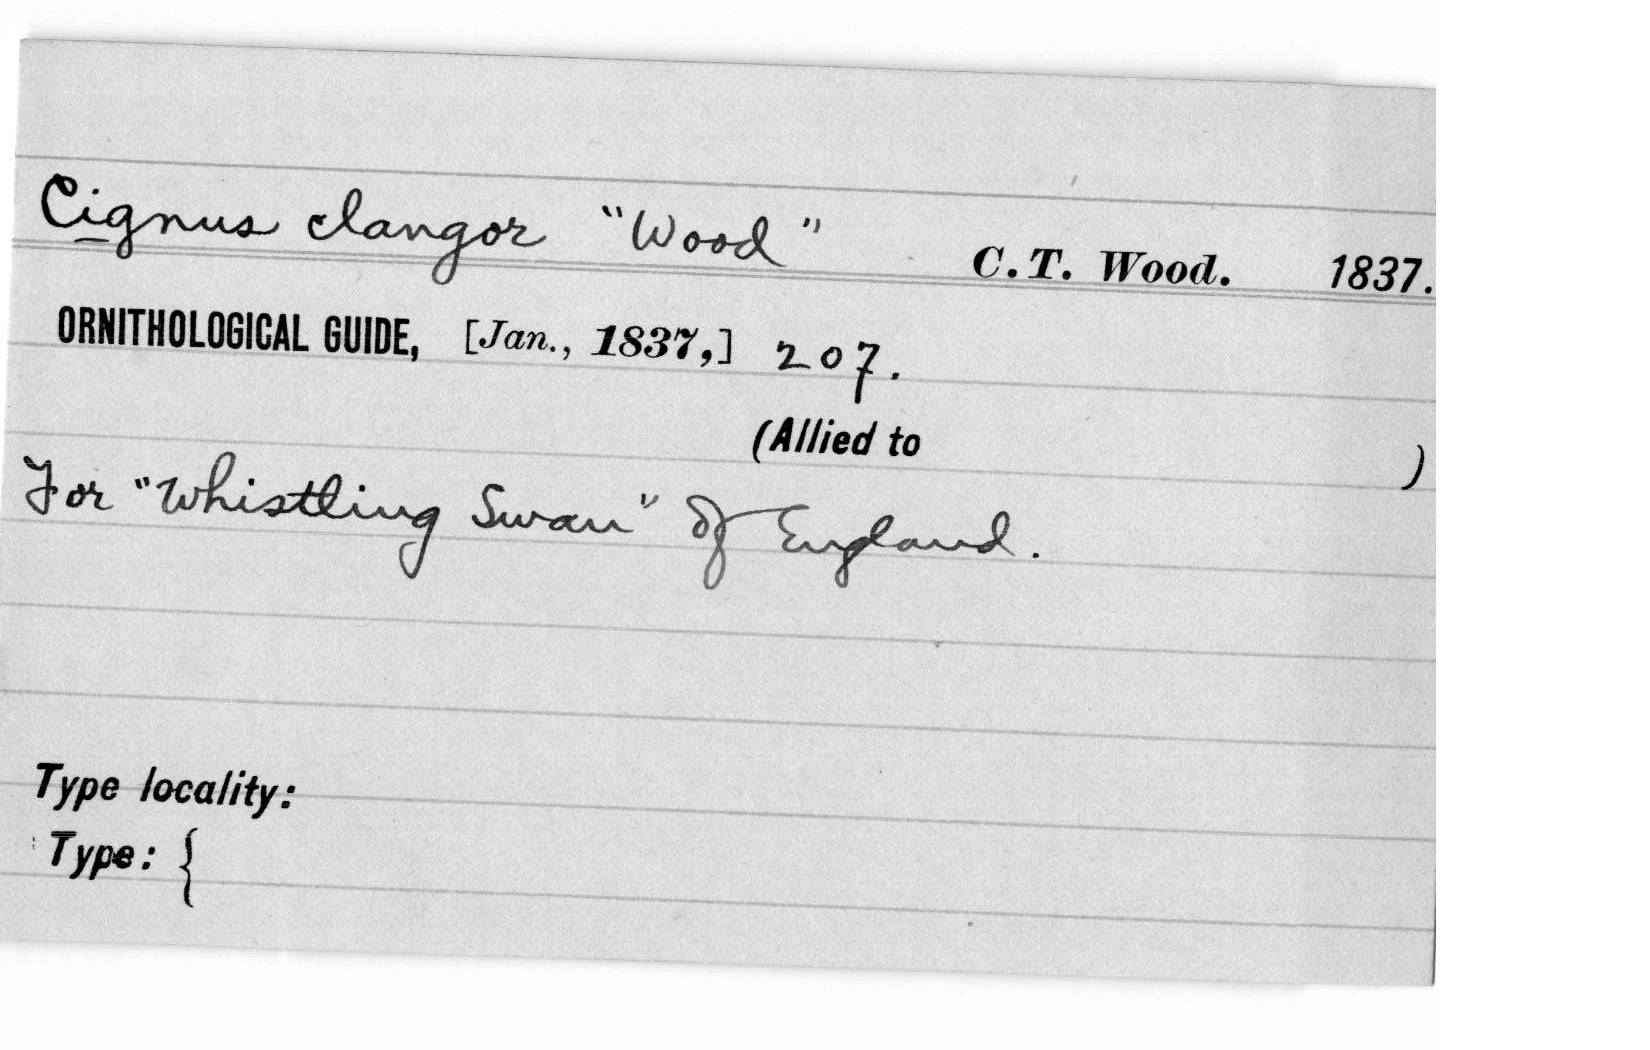 Cignus clangor "Wood" C. T. Wood. 1837.
ORNITHOLOGICAL GUIDE, [Jan., 1837,] 207.
(Allied to )
For "Whistling Swan" of England.
Type locality:
Type: {